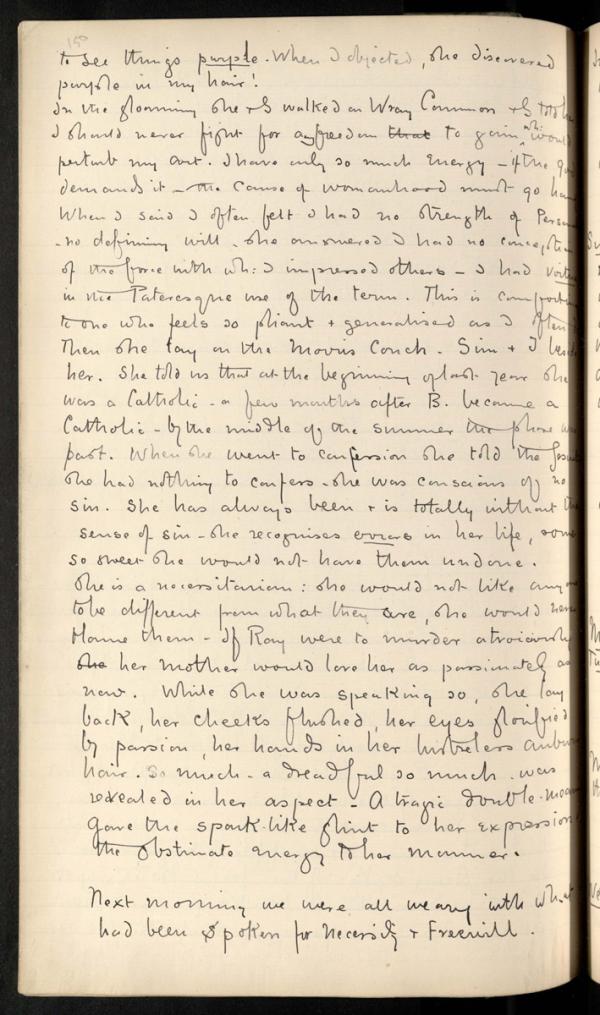 150
to see things purple. When I objected, she discovered
purple in my hair!
In the gloaming she & S walked on Wray Common & S told
I should never fight for any freedom that to gain wh: would
perturb my art. I have only so much energy – if the
demands it – the cause of womanhood must go
When I said I often felt I had no strength of
– no defining will – she answered I had no
of the force with wh: I impressed others – I had
in the Pateresque use of the term. This is
to one who feels so pliant & generalised as I often
Then she lay on the Morris Couch. Sim & I
her. She told us that at the beginning of last year she
was a Catholic – a few months after B. became a
Catholic – by the middle of the summer the phase
past. When she went to confession she told the
she had nothing to confess – she was conscious of no
sin. She has always been & is totally without
sense of sin – she recognises errors in her life, some
so sweet she would not have them undone.
She is a necessitarian: she would not like any
to be different from what they are, she would
blame them – If Ray were to murder atrociously
she her mother would love her as passionately as
now. While she was speaking so, she lay
back, her cheeks flushed, her eyes glorified
by passion, her hands in her auburn
hair. So much – a dreadful so much – was
revealed in her aspect – A tragic double
gave the spark-like glint to her expression
the obstinate energy to her manner.
Next morning we were all weary with what
had been spoken for Necessity & Freewill.